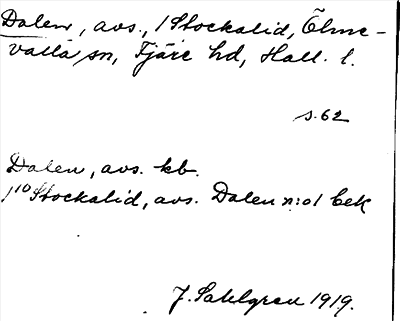 Dalen, avs., /Stockalid, Ölme-
valla sn, Fjäre hd, Hall. l.
s. 62
Dalen, avs. kb.
/10 Stockalid, avs. Dalen n:o1 bek
J. Sahlgren 1919.